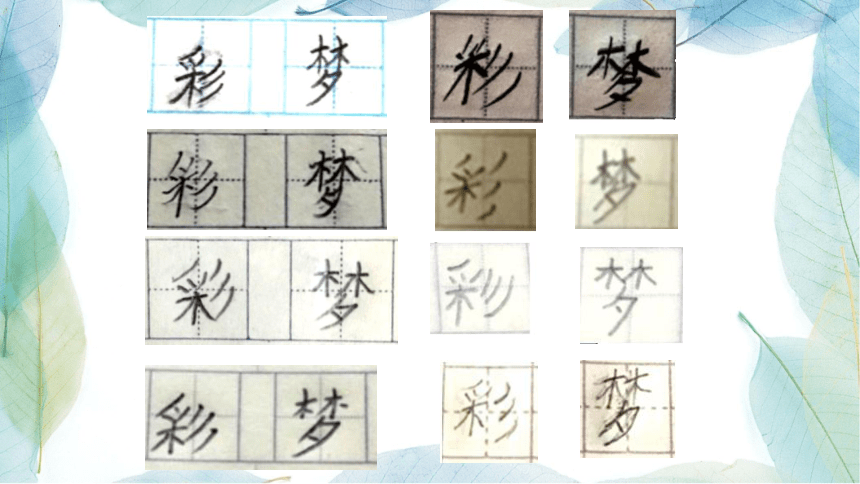 彩 梦 彩 梦
彩 梦 彩 梦
彩 梦 彩 梦
彩 梦 彩 梦